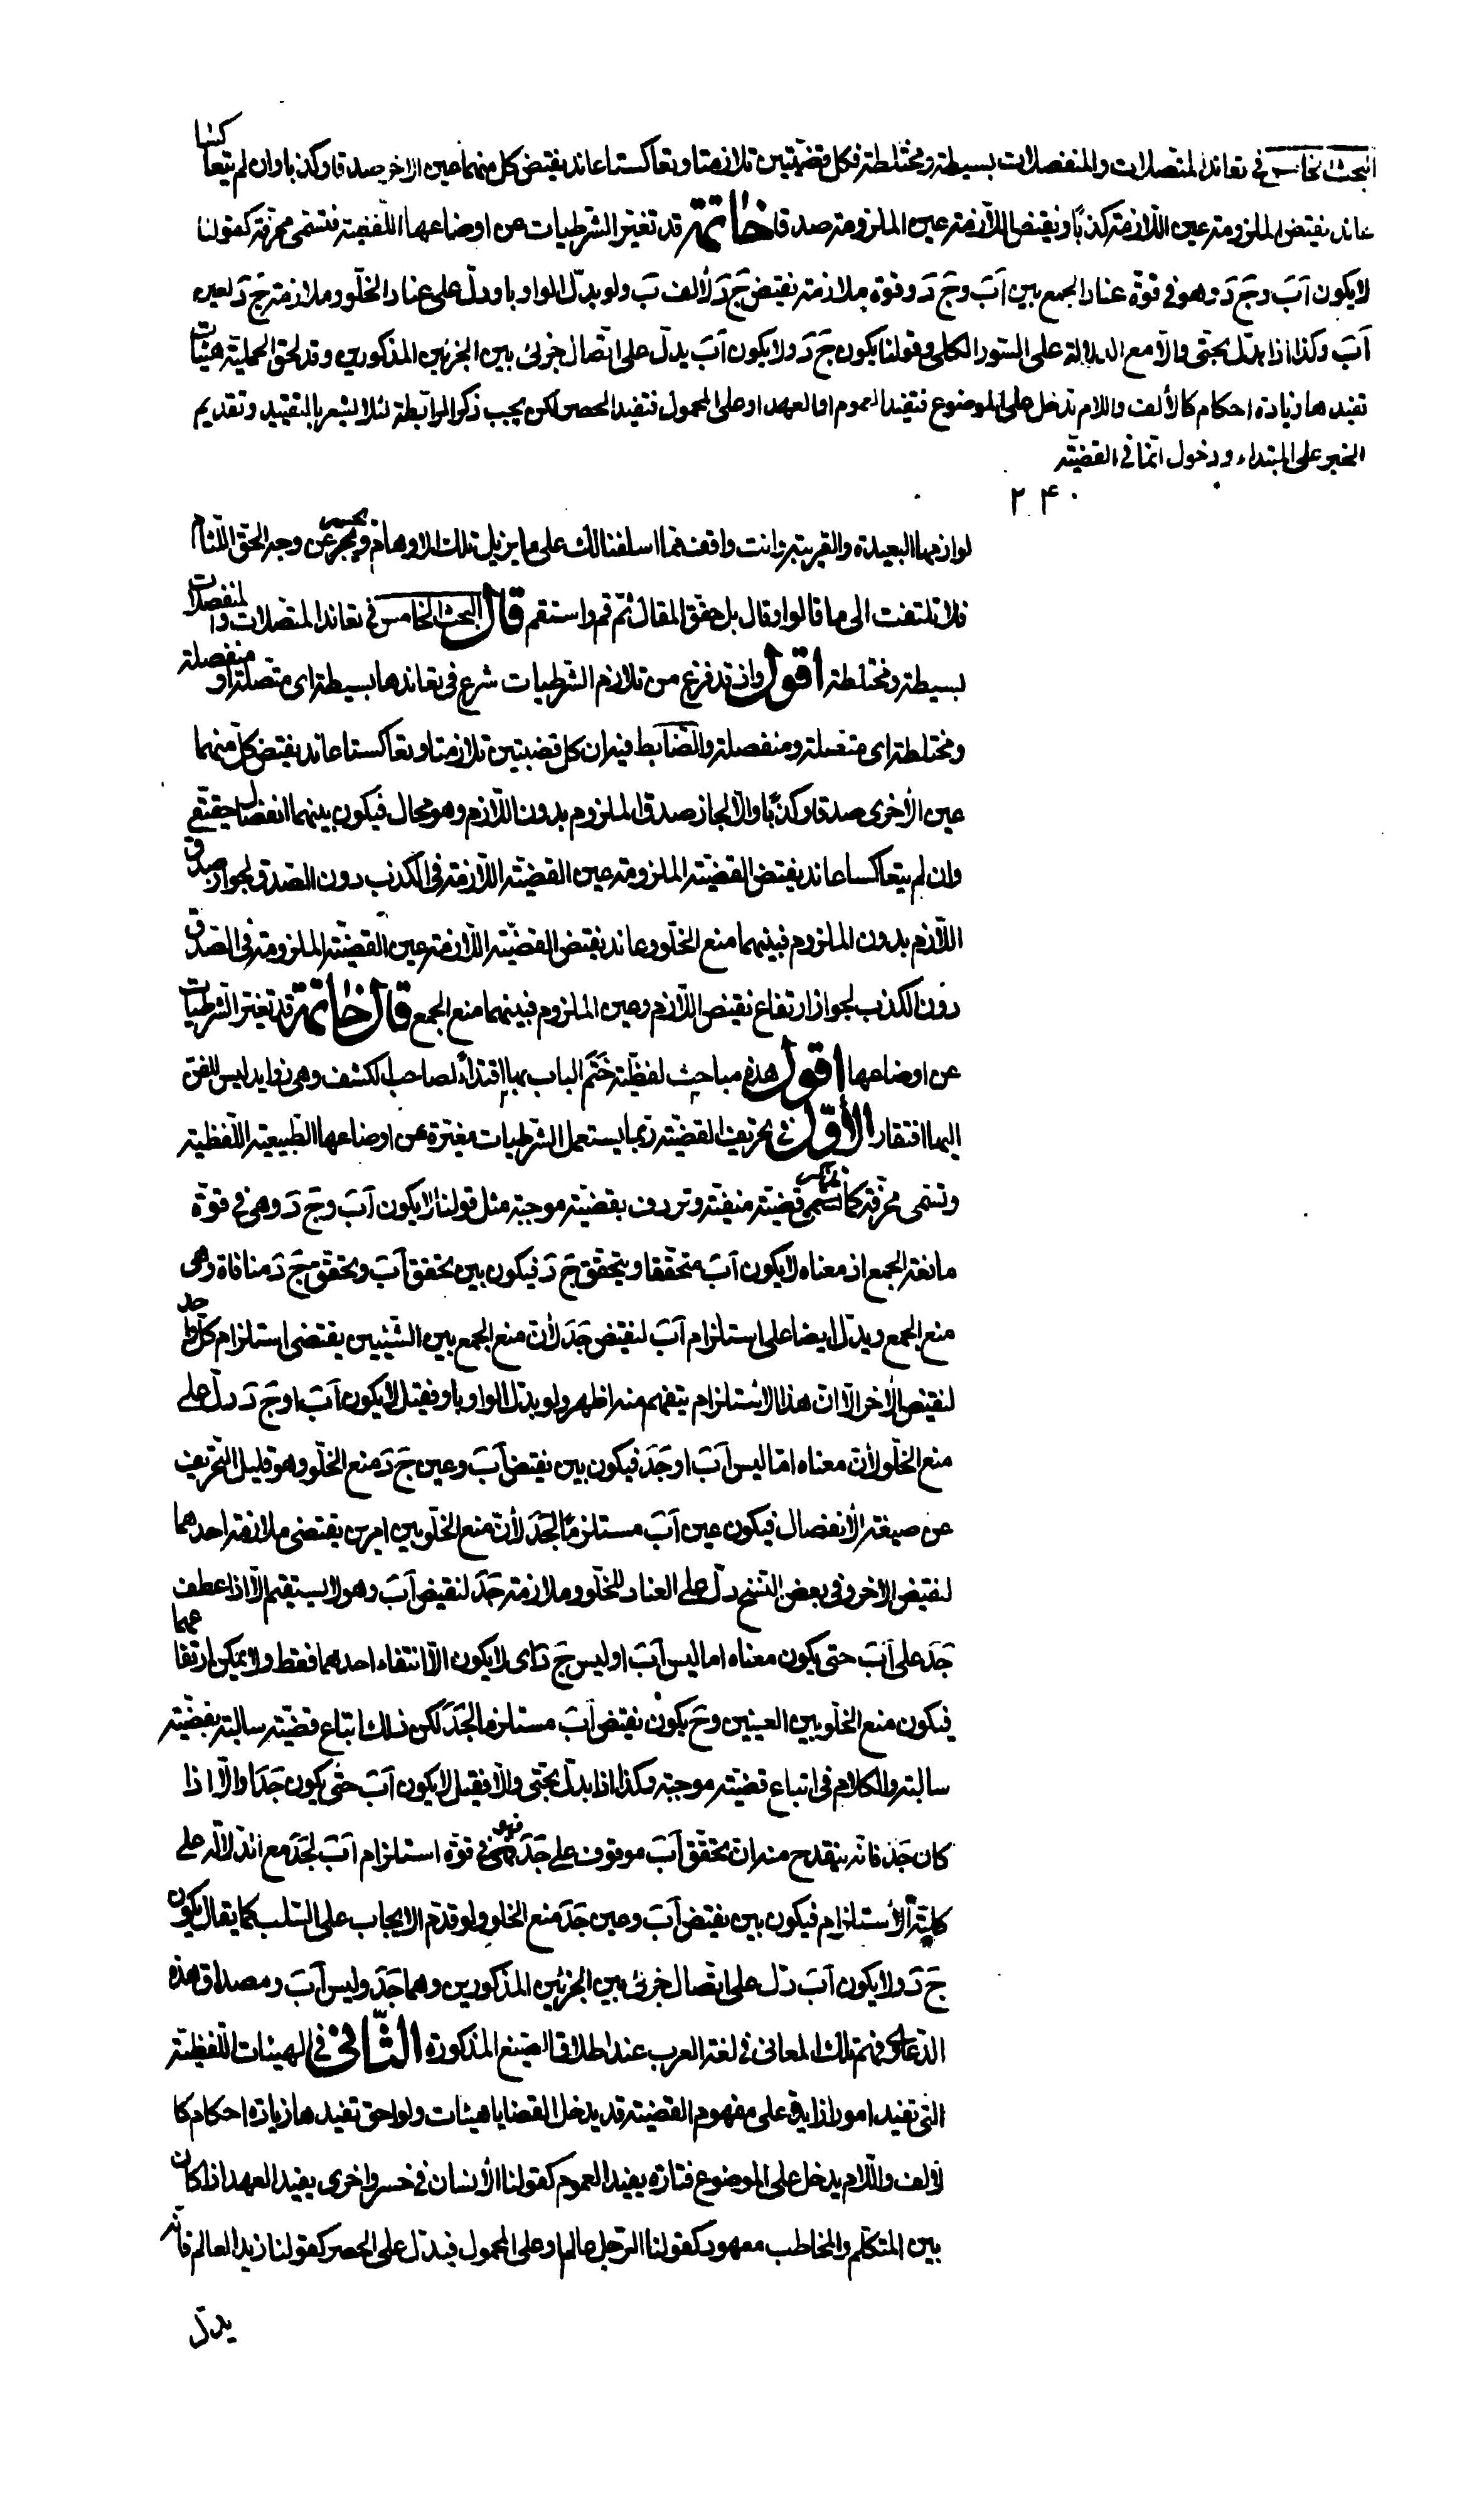 البحث الخامس في تعاند المتصلات والمنفصلات بسيطة ومختلطة فكل قضيتين تلازمتا وتعاكستا عاند نقيض كل منهما عين الاخر صدقا وكذبا وان لم يتعاكسا
عاند نقيض الملزومة عين اللازمة كذبًا ونقيض اللازمة عين الملزومة صدقا خاتمة قد تغير الشرطيات عن اوضاعها اللفظية فتسمى محرفة كقولنا
لا يكون آبَ وجَ دَ وهو في قوة عناد الجمع بين آبَ وجَ دَ وقوة ملازمة نقيض جَ دَ لألف بَ ولو بدل الواو باو دلّ على عناد الخلو وملازمة جَ دَ لعين
آبَ وكذا اذا بدّل بحتى والّا مع الدلالة على السور الكلى وقولنا يكون جَ دَ ولا يكون آبَ يدلّ على اتصال جزئى بين الجزئين المذكورين وقد لحق الحملية هيئات
تفيدها زيادة احكام كالألف واللام تدخل على الموضوع فتفيد العموم او العهد او على المحمول فتفيد الحصر لكن يجب ذكر الرابطة لئلا يشعر بالتقييد وتقديم
الخبر على المبتداء ودخول انما في القضية
۲۴۰
لوازمها البعيدة والقريبة وانت واقف مما اسلفنا لك على ما يزيل تلك الاوهام ويحسر عن وجه الحق اللثام
فلا تلتفت الى ما قالوا وقال بل حقق المقال ثم قم واستقم قال البحث الخامس في تعاند المتصلات والمنفصلات
بسيطة ومختلطة اقول واذ قد فرغ من تلازم الشرطيات شرع في تعاندها بسيطة اى متصلة او منفصلة
ومختلطة اى متصلة ومنفصلة والضابط فيه ان كل قضيتين تلازمتا وتعاكستا عاند نقيض كل منهما
عين الأخرى صدقا وكذبًا والّا لجاز صدق الملزوم بدون اللازم وهو محال فيكون بينهما انفصال حقيقى
وان لم يتعاكسا عاند نقيض القضية الملزومة عين القضية اللازمة في الكذب دون الصدق لجواز صدق
اللازم بدون الملزوم فبينهما منع الخلو وعاند نقيض القضية اللازمة عين القضية الملزومة في الصدق
دون الكذب لجواز ارتفاع نقيض اللازم وعين الملزوم فبينهما منع الجمع قال خاتمة قد تغير الشرطيات
عن اوضاعها اقول هذه مباحث لفظية خَتَم الباب بها اقتداءً لصاحب الكشف وهى زوايد ليس للفن
اليها افتقار الأوّل في تحريف القضية ربما يستعمل الشرطيات مغيرة عن اوضاعها الطبيعية اللفظية
وتسمى محرفة كما قضية منفية وتردف بقضية موجبة مثل قولنا لا يكون آبَ وجَ دَ وهى في قوة
مانعة الجمع اذ معناه لا يكون آبَ متحققا ويتحقق جَ دَ فيكون بين تحقق آبَ وتحقق جَ دَ منافاة وهى
منع الجمع ويدل ايضا على استلزام آبَ لنقيض جَدَ لأن منع الجمع بين الشيئين يقتضى استلزام كل واحد
لنقيض الأخر الّا انّ هذا الاستلزام يتفهم منه اظهر ولو بدّل الواو باو فقيل لا يكون آبَ او جَ دَ دلّ على
منع الخلو لأن معناه امّا ليس آبَ او جَدَ فيكون بين نقيض آبَ وعين جَ دَ منع الخلو وهو قليل التحريف
عن صيغة الأنفصال فيكون عين آبَ مستلزمًا لجَدَ لأنّ منع الخلو بين امرين يقتضى ملازمة احدهما
لنقيض الاخر وفي بعض النسخ دلّ على العناد للخلو وملازمة جَدَ لنقيض آبَ وهو لا يستقيم الّا اذا عطف
جَدَ على آبَ حتى يكون معناه اما ليس آبَ او ليس جَ دَ اى لا يكون الّا انتفاء احدهما فقط ولا يمكن ارتفاعهما
فيكون منع الخلو بين العينين وحَ يكون نقيض آبَ مستلزما لجَدَ لكن ذلك اتباع قضية سالبة بقضية
سالبة والكلام في اتباع قضية موجبة وكذا اذا بدّل بحتى والّا فقيل لا يكون آبَ حتّى يكون جَدَ او الّا اذا
كان جَدَ فانه ينقدح منه ان تحقق آبَ موقوف على جَدَ فهو في قوّة استلزام آبَ لجَدَ مع الدلالة على
كلية الأستلزام فيكون بين نقيض آبَ وعين جَدَ منع الخلو ولو قدّم الايجاب على السلب كما يقال يكون
جَ دَ ولا يكون آبَ دلّ على اتصال جزئى بين الجزئين المذكورين وهما جَدَ وليس آبَ ومصداق هذه
الدعاوى فهم تلك المعانى في لغة العرب عند اطلاق الصيغ المذكورة الثّانى في الهيئات اللفظية
التى تفيد امورا زايدة على مفهوم القضية قد يدخل القضايا هيئات ولواحق تفيدها زيادة احكام كا
لالف واللام يدخل على الموضوع فتارة يفيد العموم كقولنا الأنسان في خسر واخرى يفيد العهد اذا كان
بين المتكلم والمخاطب معهود كقولنا الرجل عالم او على المحمول فيدل على الحصر كقولنا زيد العالم فانه
يدل